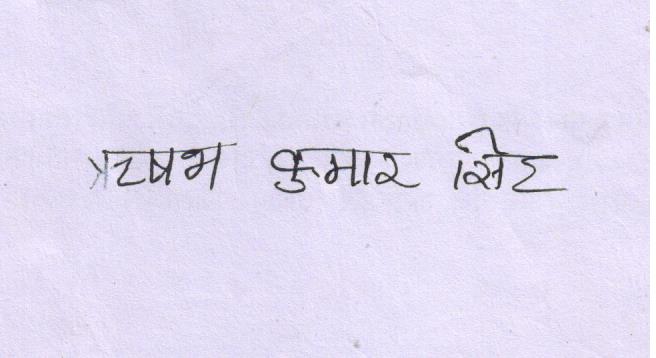 ऋषभ कुमार सिंह